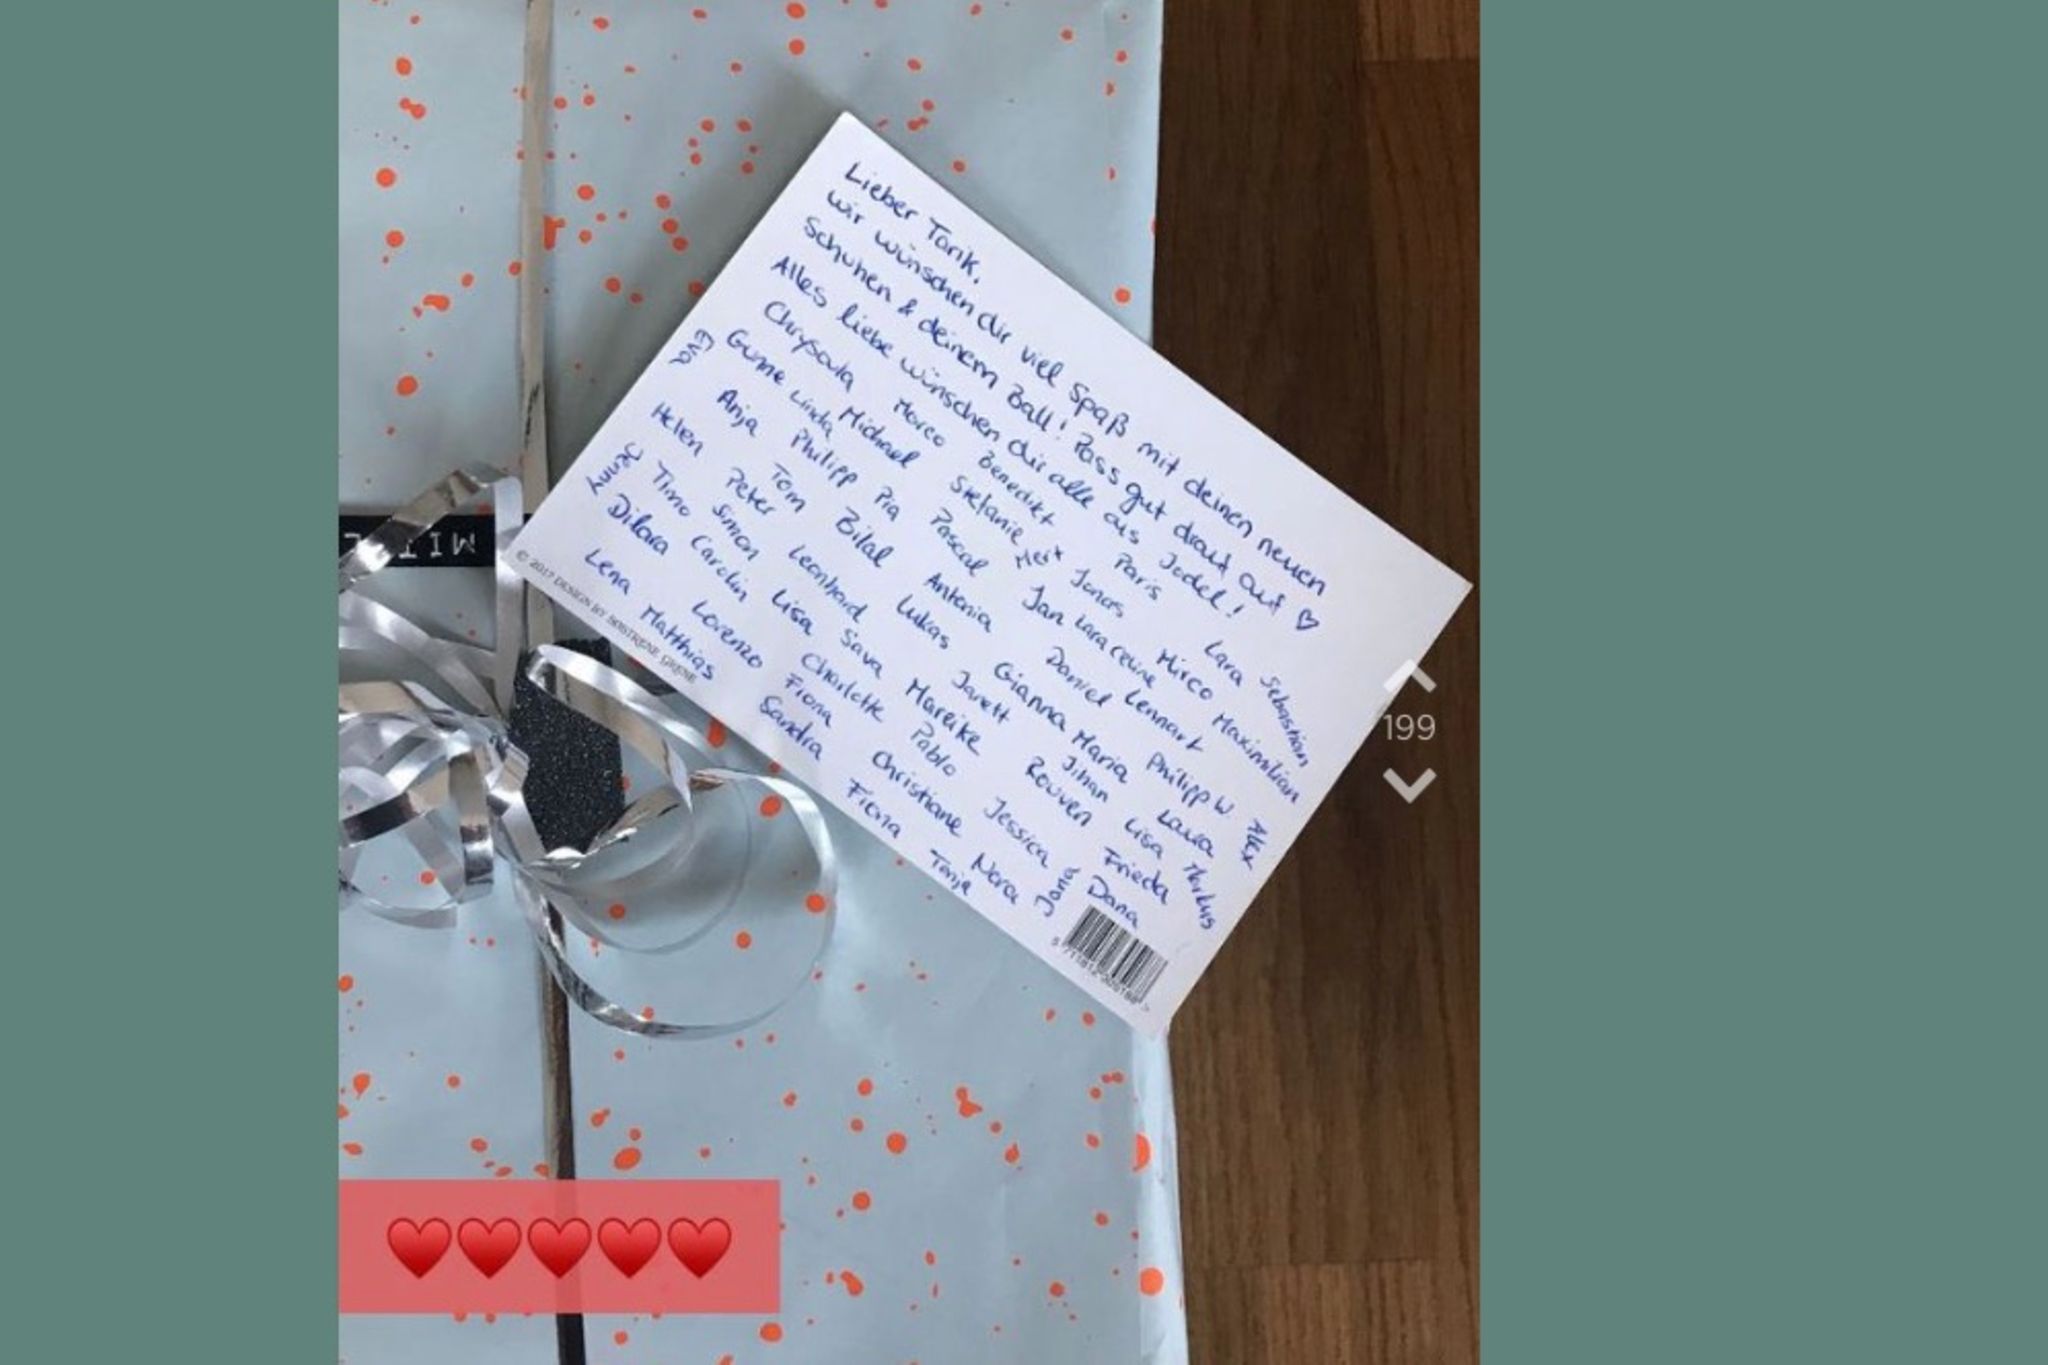 Lieber Tarik,
wir wünschen dir viel Spaß mit deinen neuen
Schuhen & deinem Ball! Pass gut drauf auf ♡
Alles liebe wünschen dir alle aus Jodel!
Chrysoula Marco Benedikt Paris Lara Sebastian
Gunne Linda Michael Stefanie Mert Jonas Mirco Maximilian
Eva Anja Philipp Pia Pascal Jan Lara Celine Lennart Philipp W Alex
Helen Tom Bilal Antonia Daniel
Jenny Timo Peter Simon Leonhard Lukas Gianna Maria Laura
Dilara Carolin Lisa Sava Janett Jihan Lisa Markus
Lena Matthias Lorenzo Charlotte Mareike Rouven Frieda
Fiona Pablo Jessica Dana
Sandra Christiane Nora Jana
Fiona Tanja
© 2017 DESIGN BY SØSTRENE GRENE
MIT
199